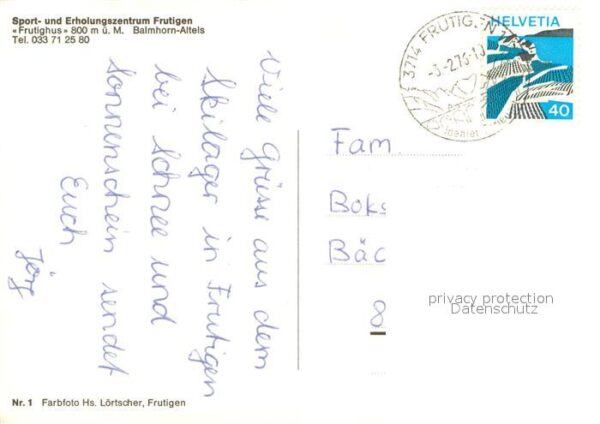 Sport- und Erholungszentrum Frutigen
«Frutighus» 800 m ü. M. Balmhorn-Altels
Tel. 033 71 25 80
Viele Grüsse aus dem
Skilager in Frutigen
bei Schnee und
Sonnenschein sendet
Euch
Jörg
3714 FRUTIG
-3.-2.76-10
HELVETIA
40
Fam.
Boks
Bäc
8
privacy protection
Datenschutz
Nr. 1 Farbfoto Hs. Lörtscher, Frutigen